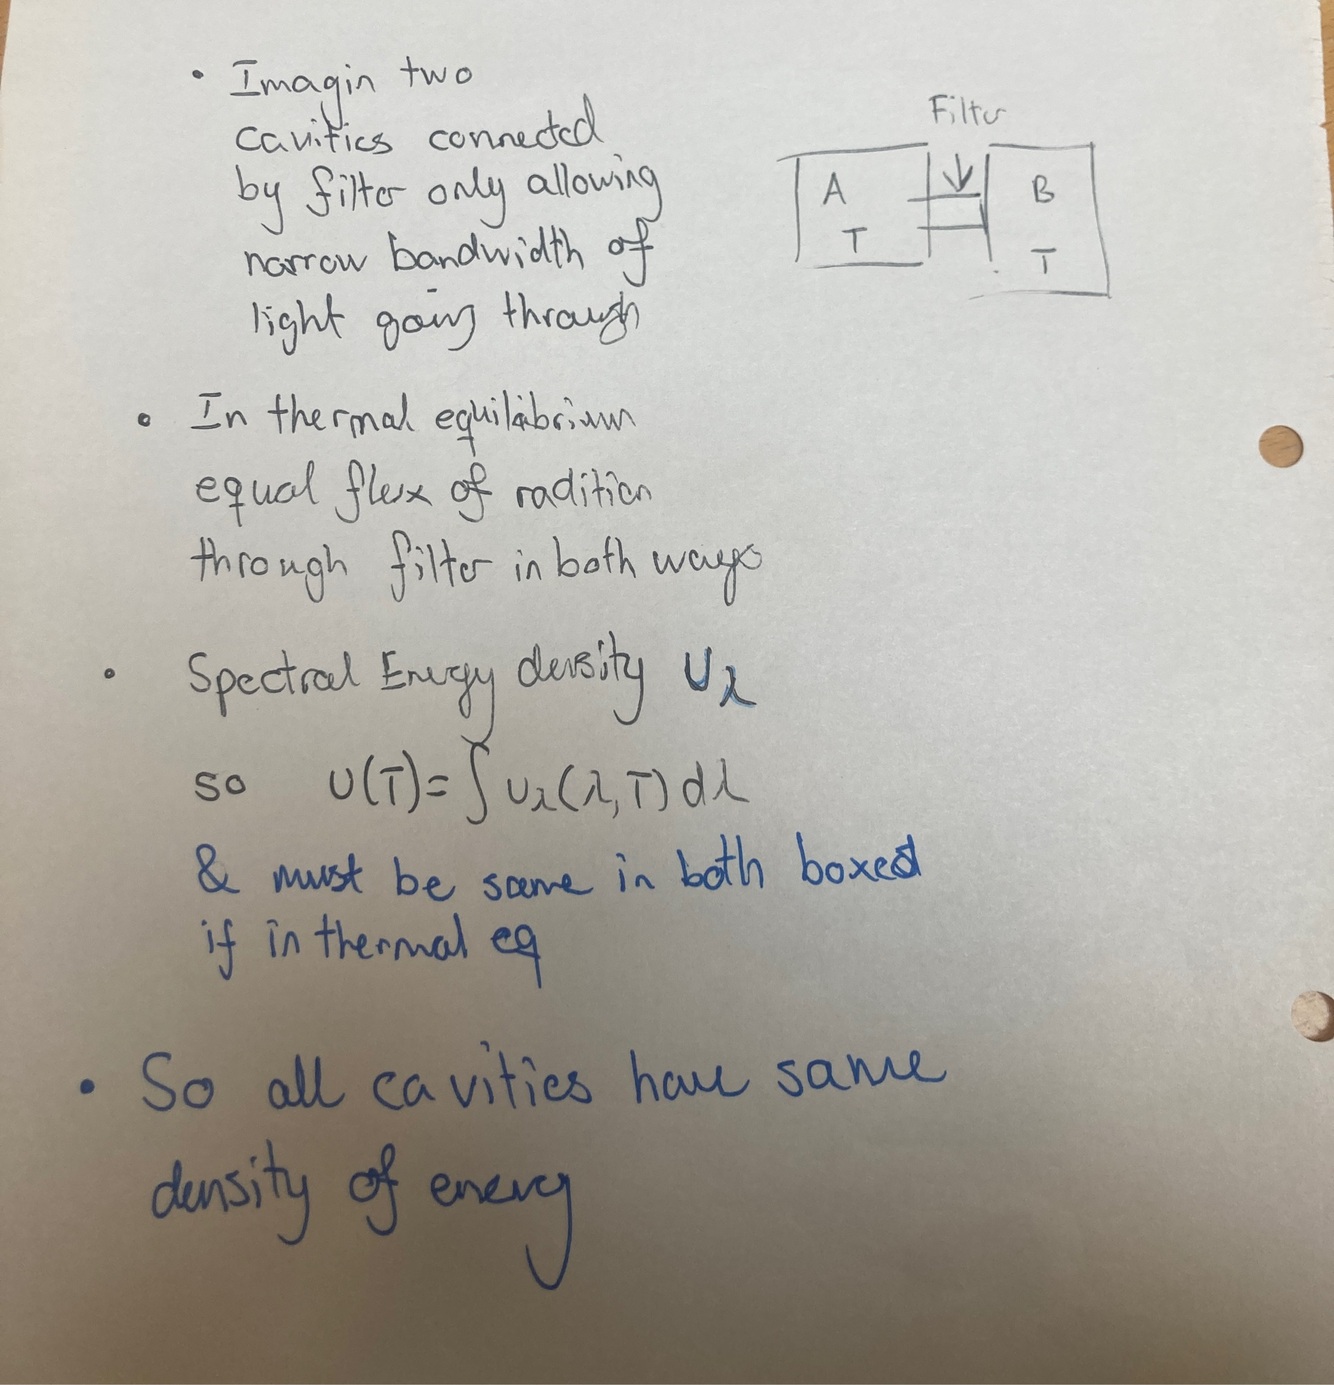 • Imagin two
cavities connected
by filter only allowing
narrow bandwidth of
light going through
Filter
A
B
T
T
• In thermal equilibrium
equal flux of radition
through filter in both ways
• Spectral Energy density U_λ
so U(T) = ∫ u_λ(λ, T) dλ
& must be same in both boxed
if in thermal eq
• So all cavities have same
density of energy